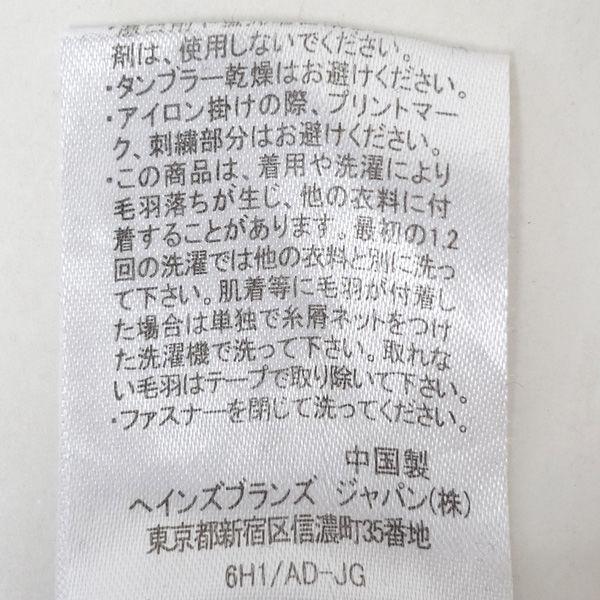 剤は、使用しないでください。
・タンブラー乾燥はお避けください。
・アイロン掛けの際、プリントマー
ク、刺繍部分はお避けください。
・この商品は、着用や洗濯により
毛羽落ちが生じ、他の衣料に付
着することがあります。最初の1.2
回の洗濯では他の衣料と別に洗っ
て下さい。肌着等に毛羽が付着し
た場合は単独で糸屑ネットをつけ
た洗濯機で洗って下さい。取れな
い毛羽はテープで取り除いて下さい。
・ファスナーを閉じて洗ってください。
中国製
ヘインズブランズ ジャパン(株)
東京都新宿区信濃町35番地
6H1/AD-JG